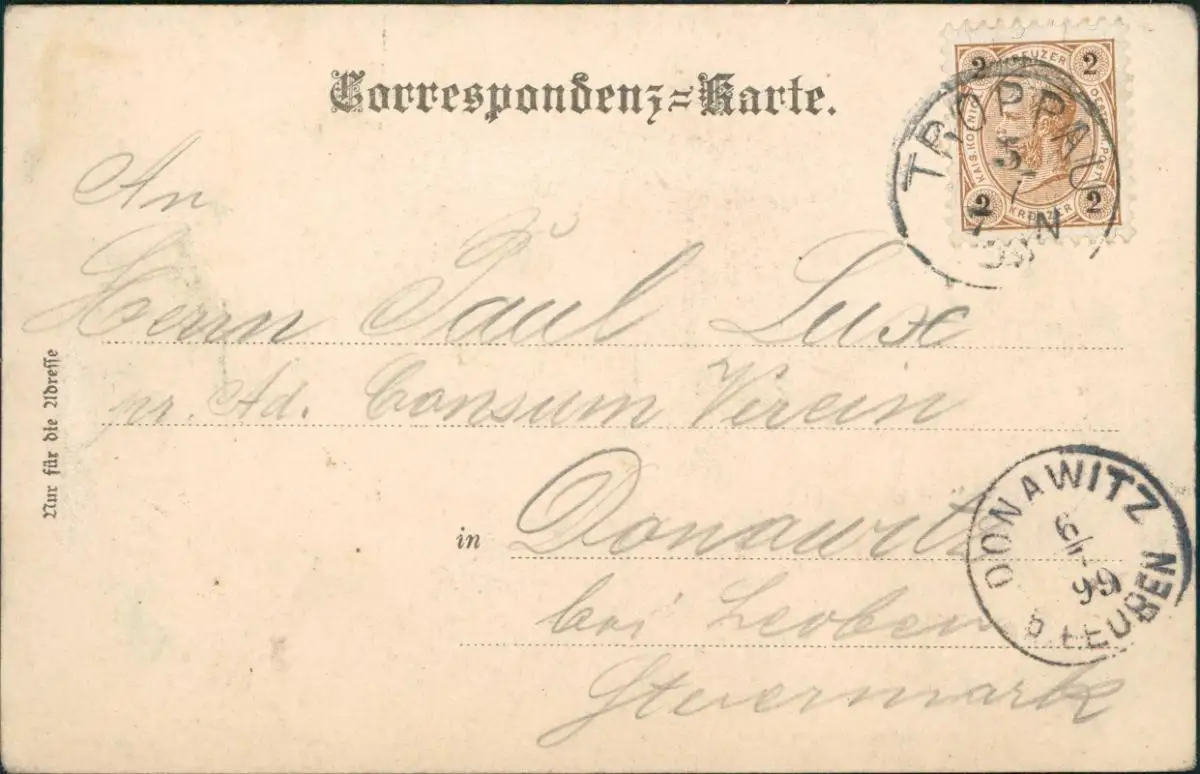 Correspondenz=Karte.
2 KREUZER 2
KAIS. KOENIG
OESTERR. POST
2 KREUZER 2
TROPPAU
5
7 N
99
An
Herrn Paul Lux
pr. Ad. Consum Verein
in Donawitz
bei Leoben
Steiermark
Nur für die Adresse
DONAWITZ
6/1
99
b. LEOBEN